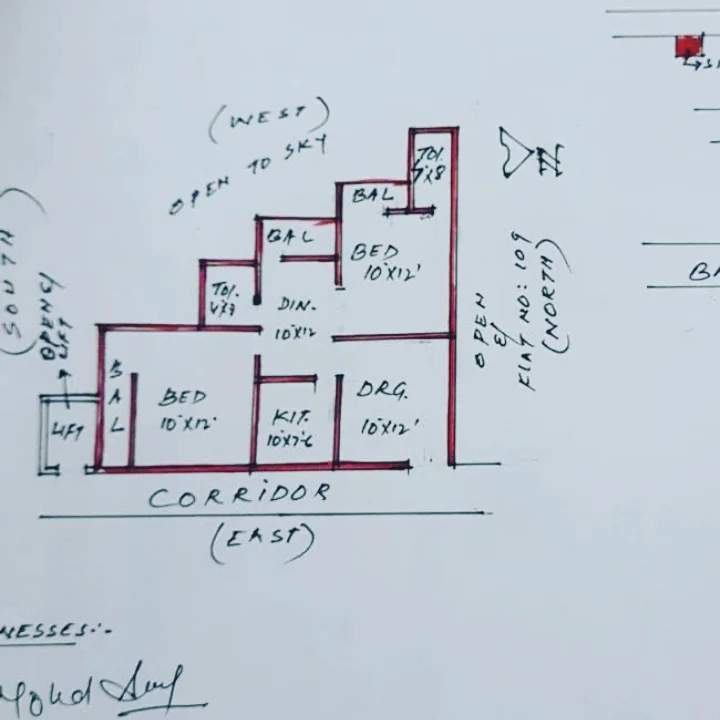 (WEST)
OPEN TO SKY
TOI.
7'X8
BAL
BAL
BED
10'X12'
TOI.
4'X7
DIN.
10'X12
(SOUTH)
OPEN &
LIFT
LIFT
BAL
BED
10'X12'
KIT.
10'X7'6
DRG.
10'X12'
OPEN
&
FLAT NO: 109
(NORTH)
N
CORRiDOR
(EAST)
NESSES:-
BA